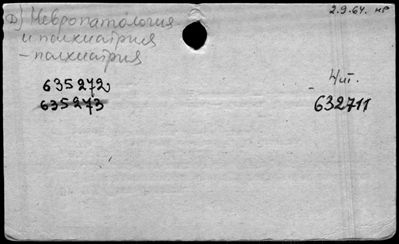 2.9.64. нр
D) Невропатология
и психиатрия
– психиатрия
635272
635273
Чит.
632711